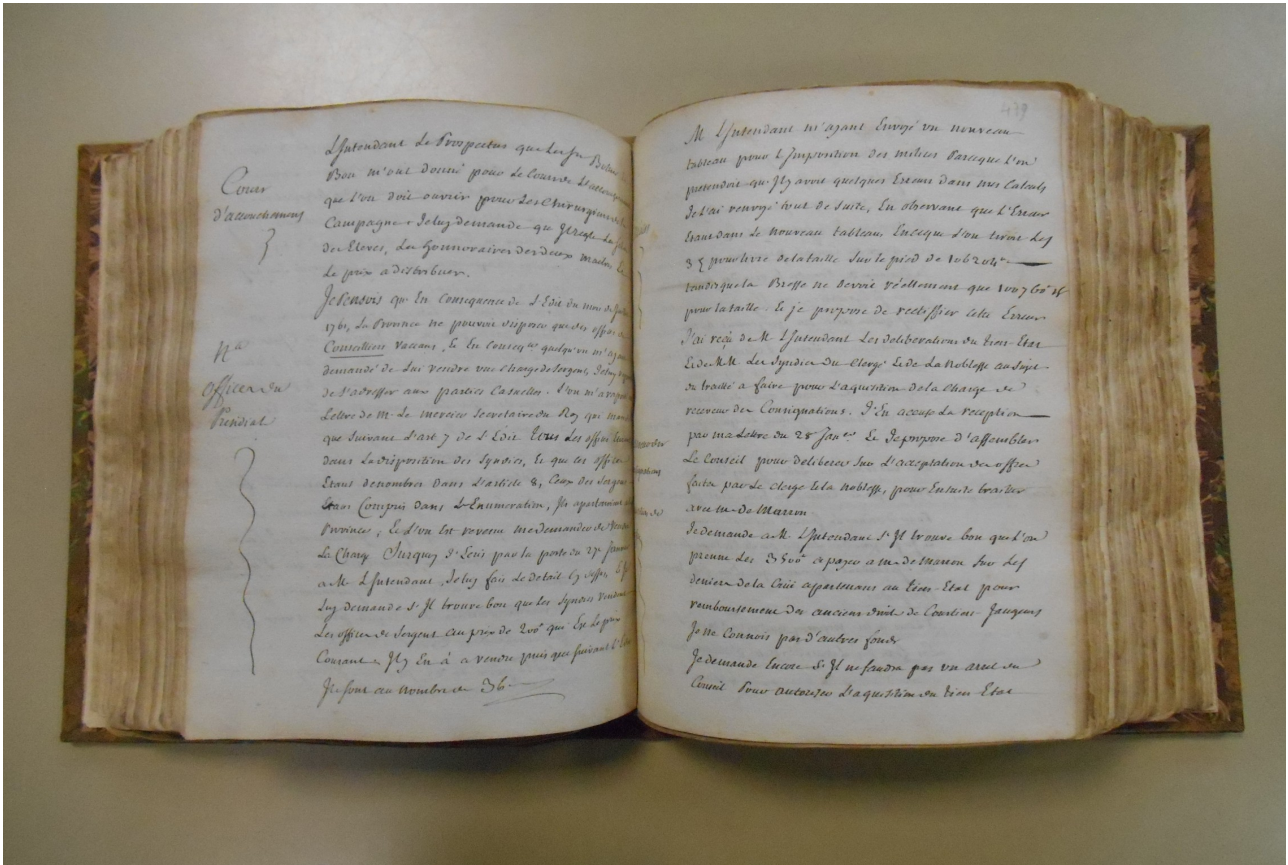 Cour
d'accouchemens
Na
officer du
Présidial
L'Intendant Le Prospectus que Les Srs
Bon m'ont donné pour Le Cours
que l'on doit ouvrir pour Les Chirurgiens
Campagne. Je luy demande qu'Il regle
des Eleves, Les honnoraires des deux maitres
Le prix a distribuer.
Je Pensois qu'En Consequence de L'Edit du mois de
1761, La Province ne pouvoit disposer que des offices de
Conseillers vacans, Et En quelqu'un m'ayant
demandé de Lui vendre une Charge de Sergent, Je luy
de s'adresser aux parties Casuelles. L'on m'a
Lettre de M. Le mercier Secretaire du Roy qui
que suivant L'art 7 de L'Edit Tous Les offices
dans La disposition des Syndics, Et que les offices
Etans denombrés Dans L'article 8, Ceux des Sergens
Etans Compris dans L'Enumeration, Ils apartiennent
Province, Et L'on Est revenu me demander de
La Charge Surquoy J'Ecris par la poste du 27e
a M. L'Intendant, Je luy fais Le detail cy dessus,
Luy demande s'Il trouve bon que les Syndics Vendent
Les offices de Sergent au prix de 200# qui Est Le prix
Courant. Il y En à a vendre puis que suivant
Ils sont au nombre de 36
439
M L'Intendant m'ayant Envoyé un nouveau
tableau pour L'Imposition des milices Parceque L'on
pretendoit qu'Il y avoit quelques Erreurs dans mes Calculs
Je L'ai renvoyé tout de suite, En observant que L'Erreur
Etoit dans Le nouveau tableau, Enceque L'on tiroit Les
pour livre de la taille Sur le pied de
tandis que la Bresse ne devoit réellement que
pour la taille. Et je propose de rectiffier cette Erreur
J'ai reçu de M. L'Intendant Les deliberations du tiers Etat
Et de MM. Les Syndics Du Clergé Et de La Noblesse au Sujet
du traitté a faire pour L'aquisition de La Charge de
receveur des Consignations. J'En accuse La reception
par ma Lettre du 28 Janer. Et Je propose d'assembler
Le Conseil pour deliberer Sur L'acceptation des offres
faites par Le Clergé Et la Noblesse, pour Ensuite traiter
avec m. de Marron
Je demande a M. L'Intendant s'Il trouve bon que L'on
prenne Les 3500# a payer a m. de Marron Sur Les
deniers de la Crüe appartenans au tiers Etat pour
remboursement des anciens droits de Courtiers Jaugeurs
Je ne Connois pas d'autres fonds
Je demande Encore S'Il ne faudra pas un arret du
Conseil Pour autoriser L'aquisition du tiers Etat